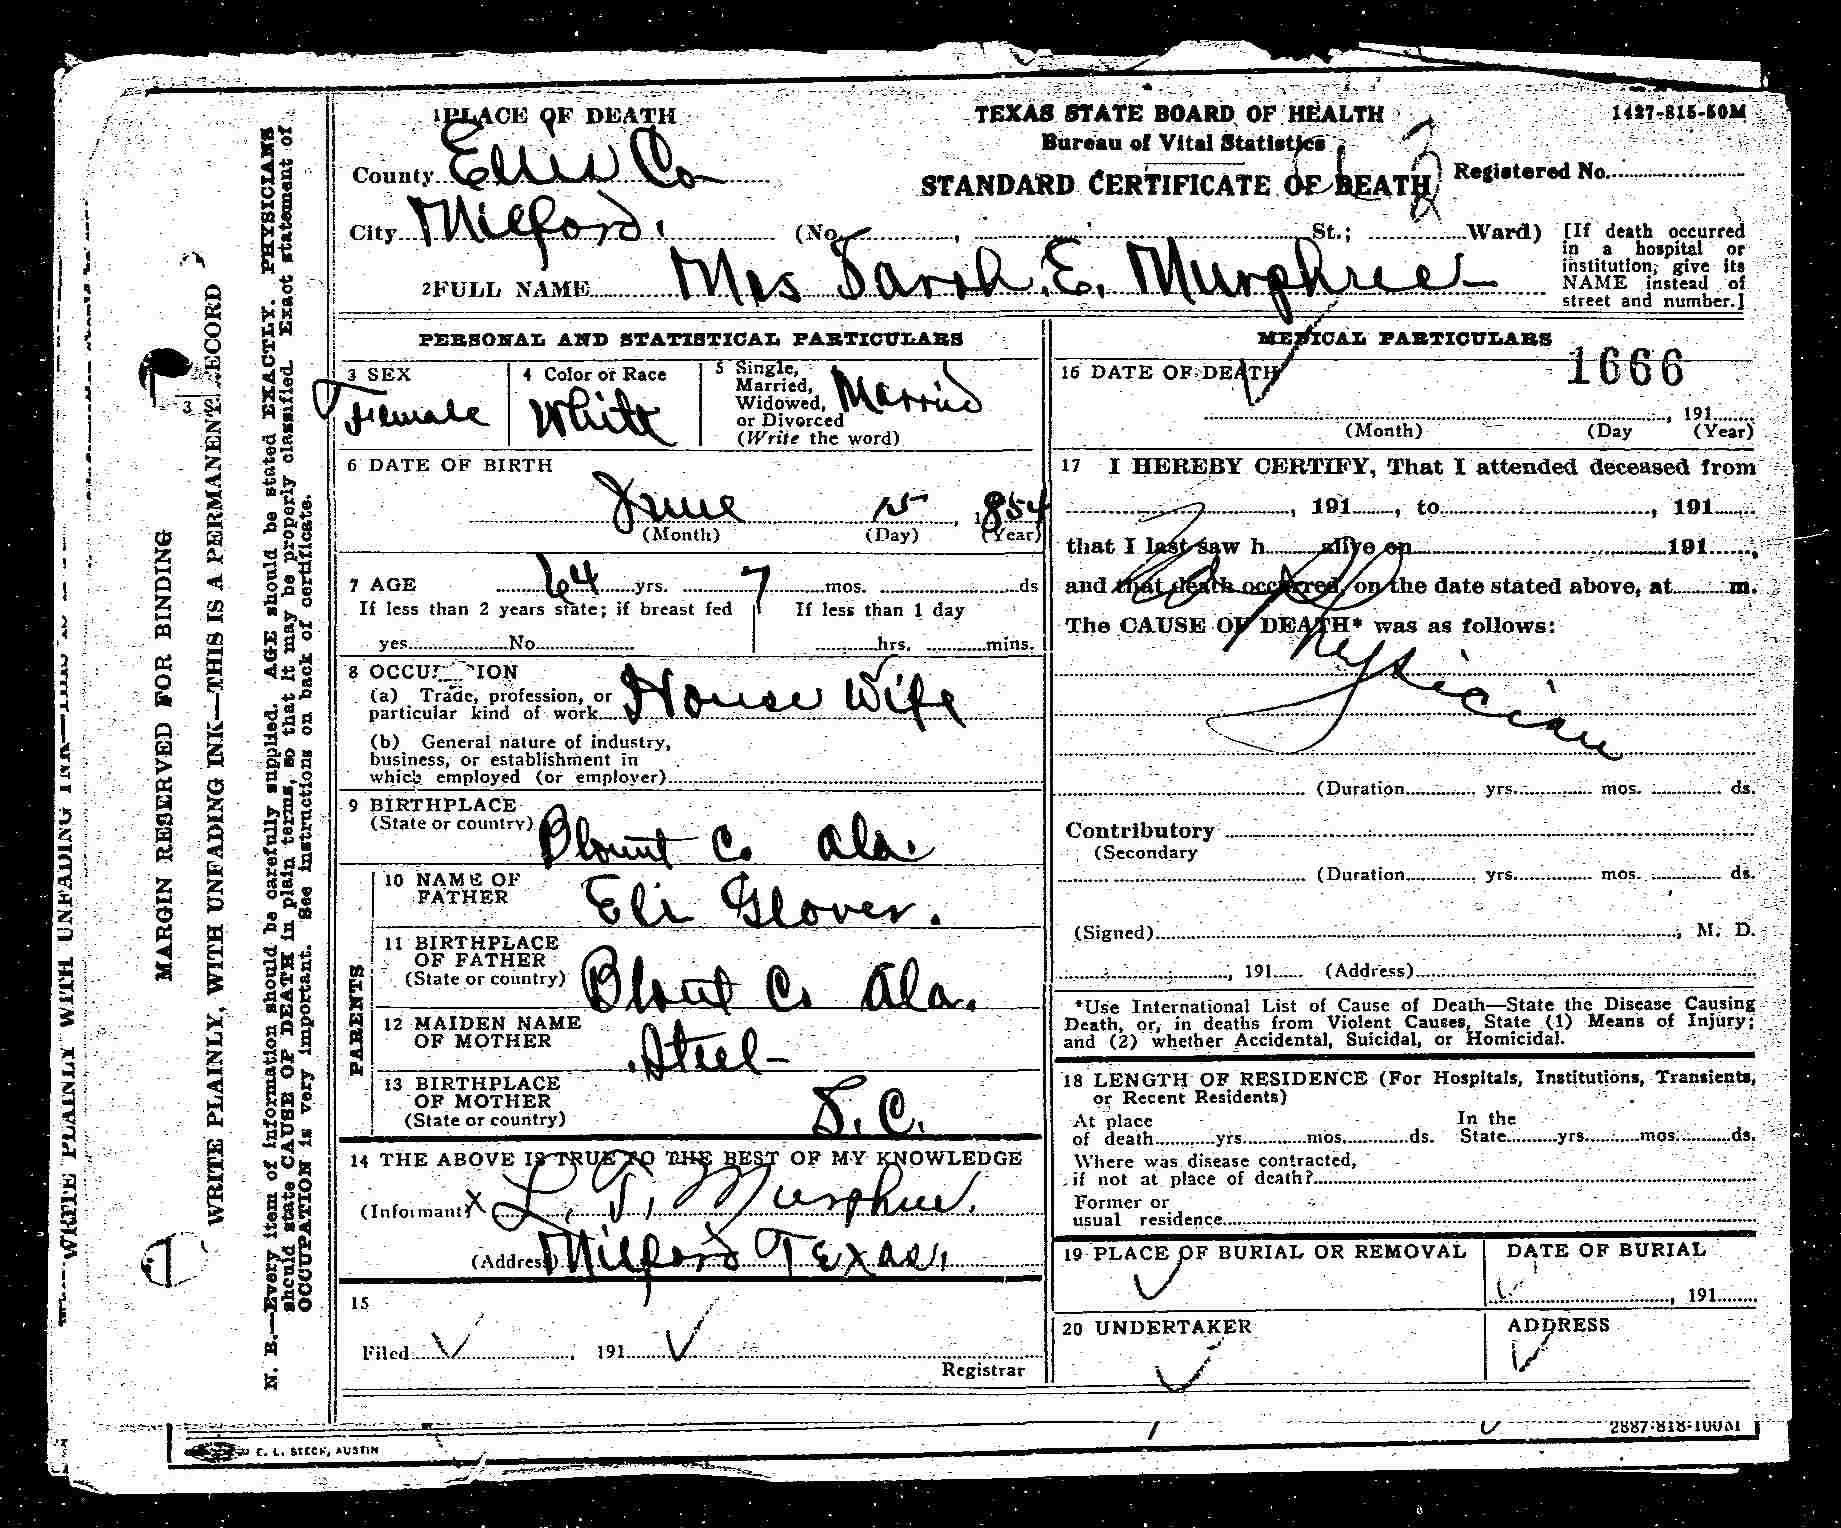 1PLACE OF DEATH
County Ellis Co
City Milford.
TEXAS STATE BOARD OF HEALTH
Bureau of Vital Statistics
STANDARD CERTIFICATE OF DEATH
1427-815-50M
Registered No.
(No. , St.; Ward)
[If death occurred
in a hospital or
institution, give its
NAME instead of
street and number.]
2FULL NAME Mrs Sarah. E. Murphree
PERSONAL AND STATISTICAL PARTICULARS
3 SEX
Female
4 Color or Race
White
5 Single,
Married,
Widowed,
or Divorced
(Write the word)
Married
6 DATE OF BIRTH
June 15, 1854
(Month) (Day) (Year)
7 AGE 64 yrs. 7 mos. ds
If less than 2 years state; if breast fed
yes No
If less than 1 day
hrs. mins.
8 OCCU ION
(a) Trade, profession, or
particular kind of work House Wife
(b) General nature of industry,
business, or establishment in
which employed (or employer)
9 BIRTHPLACE
(State or country) Blount Co Ala.
PARENTS
10 NAME OF
FATHER Eli Glover.
11 BIRTHPLACE
OF FATHER
(State or country) Blout Co Ala.
12 MAIDEN NAME
OF MOTHER Steel
13 BIRTHPLACE
OF MOTHER
(State or country) S. C.
14 THE ABOVE IS TRUE TO THE BEST OF MY KNOWLEDGE
(Informant) X L. T. Murphree.
(Address) Milford Texas.
15
Filed , 191
Registrar
MEDICAL PARTICULARS
16 DATE OF DEATH
1666
, 191
(Month) (Day (Year)
17 I HEREBY CERTIFY, That I attended deceased from
, 191 , to , 191
that I last saw h alive on 191 ,
and that death occurred, on the date stated above, at m.
The CAUSE OF DEATH* was as follows:
No Physician
(Duration yrs. mos. ds.
Contributory
(Secondary
(Duration yrs. mos. ds.
(Signed) , M. D.
, 191 (Address)
*Use International List of Cause of Death—State the Disease Causing
Death, or, in deaths from Violent Causes, State (1) Means of Injury;
and (2) whether Accidental, Suicidal, or Homicidal.
18 LENGTH OF RESIDENCE (For Hospitals, Institutions, Transients,
or Recent Residents)
At place
of death yrs. mos. ds.
In the
State yrs. mos. ds.
Where was disease contracted,
if not at place of death?
Former or
usual residence
19 PLACE OF BURIAL OR REMOVAL
DATE OF BURIAL
, 191
20 UNDERTAKER
ADDRESS
2887-818-100M
E. L. STECK, AUSTIN
MARGIN RESERVED FOR BINDING
WRITE PLAINLY, WITH UNFADING INK—THIS IS A PERMANENT RECORD
N. B.—Every item of information should be carefully supplied. AGE should be stated EXACTLY. PHYSICIANS
should state CAUSE OF DEATH in plain terms, so that it may be properly classified. Exact statement of
OCCUPATION is very important. See instructions on back of certificate.
WRITE PLAINLY WITH UNFADING INK—THIS IS